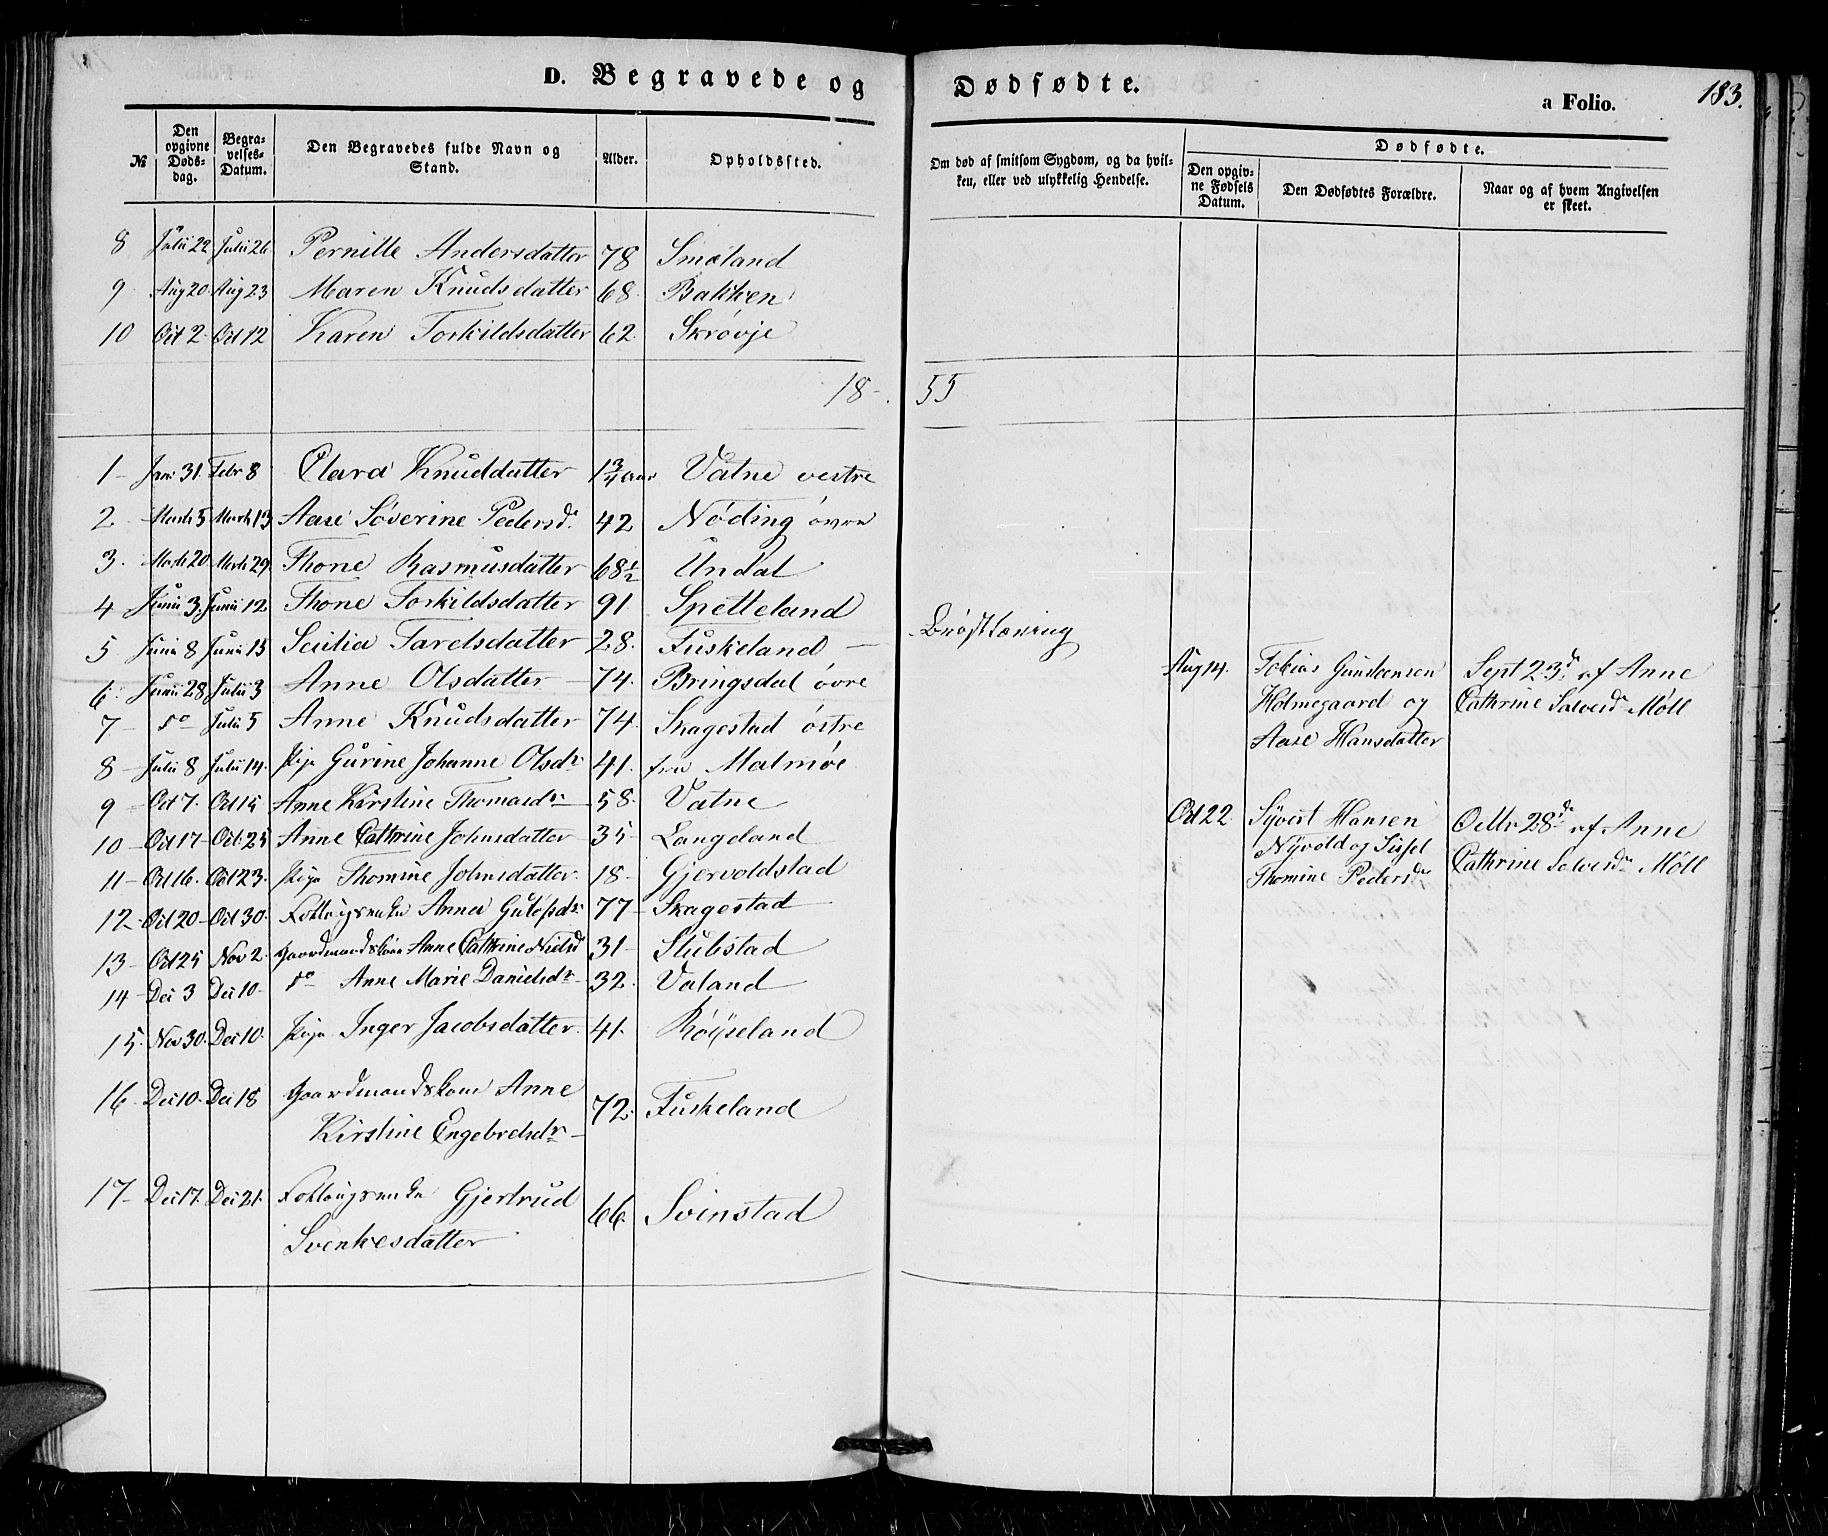 D. Begravede og Dødfødte.
a Folio. 183.
№ Den opgivne Døds-dag. Begra-velses-Datum. Den Begravedes fulde Navn og Stand. Alder. Opholdssted. Om død af smitsom Sygdom, og da hvil-ken, eller ved ulykkelig Hendelse. Dødfødte. Den opgiv-ne Fødsels Datum. Den Dødfødtes Forældre. Naar og af hvem Angivelsen er skeet.
8 Julii 22 Julii 26 Pernille Andersdatter 78 Smaland
9 Aug 20 Aug 23 Maren Knudsdatter 68 Bakken
10 Oct 2 Oct 12 Karen Torkildsdatter 62 Skrøvje
18 - 55
1 - Jan 31 Febr 8 Clara Knuddatter 1 3/4 aar Vatne vestre
2 Marts 5 Marts 13 Aase Søverine Pedersdr 42 Nøding øvre
3. Marts 20 Marts 29 Thone Rasmusdatter 68 1/2 Undal
4 Junii 3 Junii 12 Thone Torkildsdatter 91 Spetteland
5 Junii 8 Junii 15 Sesilia Tarelsdatter 28. Fuskeland - Brøsttæring
6. Junii 28 Julii 3 Anne Olsdatter - 74. Bringsdal øvre
7 - do Julii 5 Anne Knudsdatter 74. Skagestad østre
8 - Julii 8 Julii 14. Pige Gurine Johanne Olsdr 41. fra Malmøe
9 - Oct 7. Oct 15 Anne Kirstine Thomasdr 58. Vatne
10 - Oct 17 Oct 25 Anne Cathrine Johnsdatter 35 - Langeland
11 - Oct 16. Oct 23. Pige Thomine Johnsdatter 18 - Gjervoldstad
12 - Oct 20 Oct 30. Føllougsenke Anna Gulofsdr 77 - Skagestad
13 - Oct 25 Nov 2. Gaardmandskone Anne Cathrine Nielsd 31 - Stubstad
14 - Dec 3 Dec 10 - do Anne Marie Danielsdr 32. Valand
15. Nov 30. Dec 10. Pige Inger Jacobsdatter 41. Røyseland
16 Dec 10. Dec 18 Gaardmandskone Anne
Kirstine Engebretsdr 72. Fuskeland
17 - Dec 17. Dec 21. Føllougsenke Gjertrud
Svenkesdatter 66. Svinstad
Aug 14. Tobias Gundersen Sept 23de af Anne
Holmegaard og Cathrine Salvesdr Møll
Aase Hansdatter
Oct 22 Syvert Hansen Octbr 28de af Anne
Nyvold og Sissel Cathrine Salvesdr Møll
Thomine Pedersdr